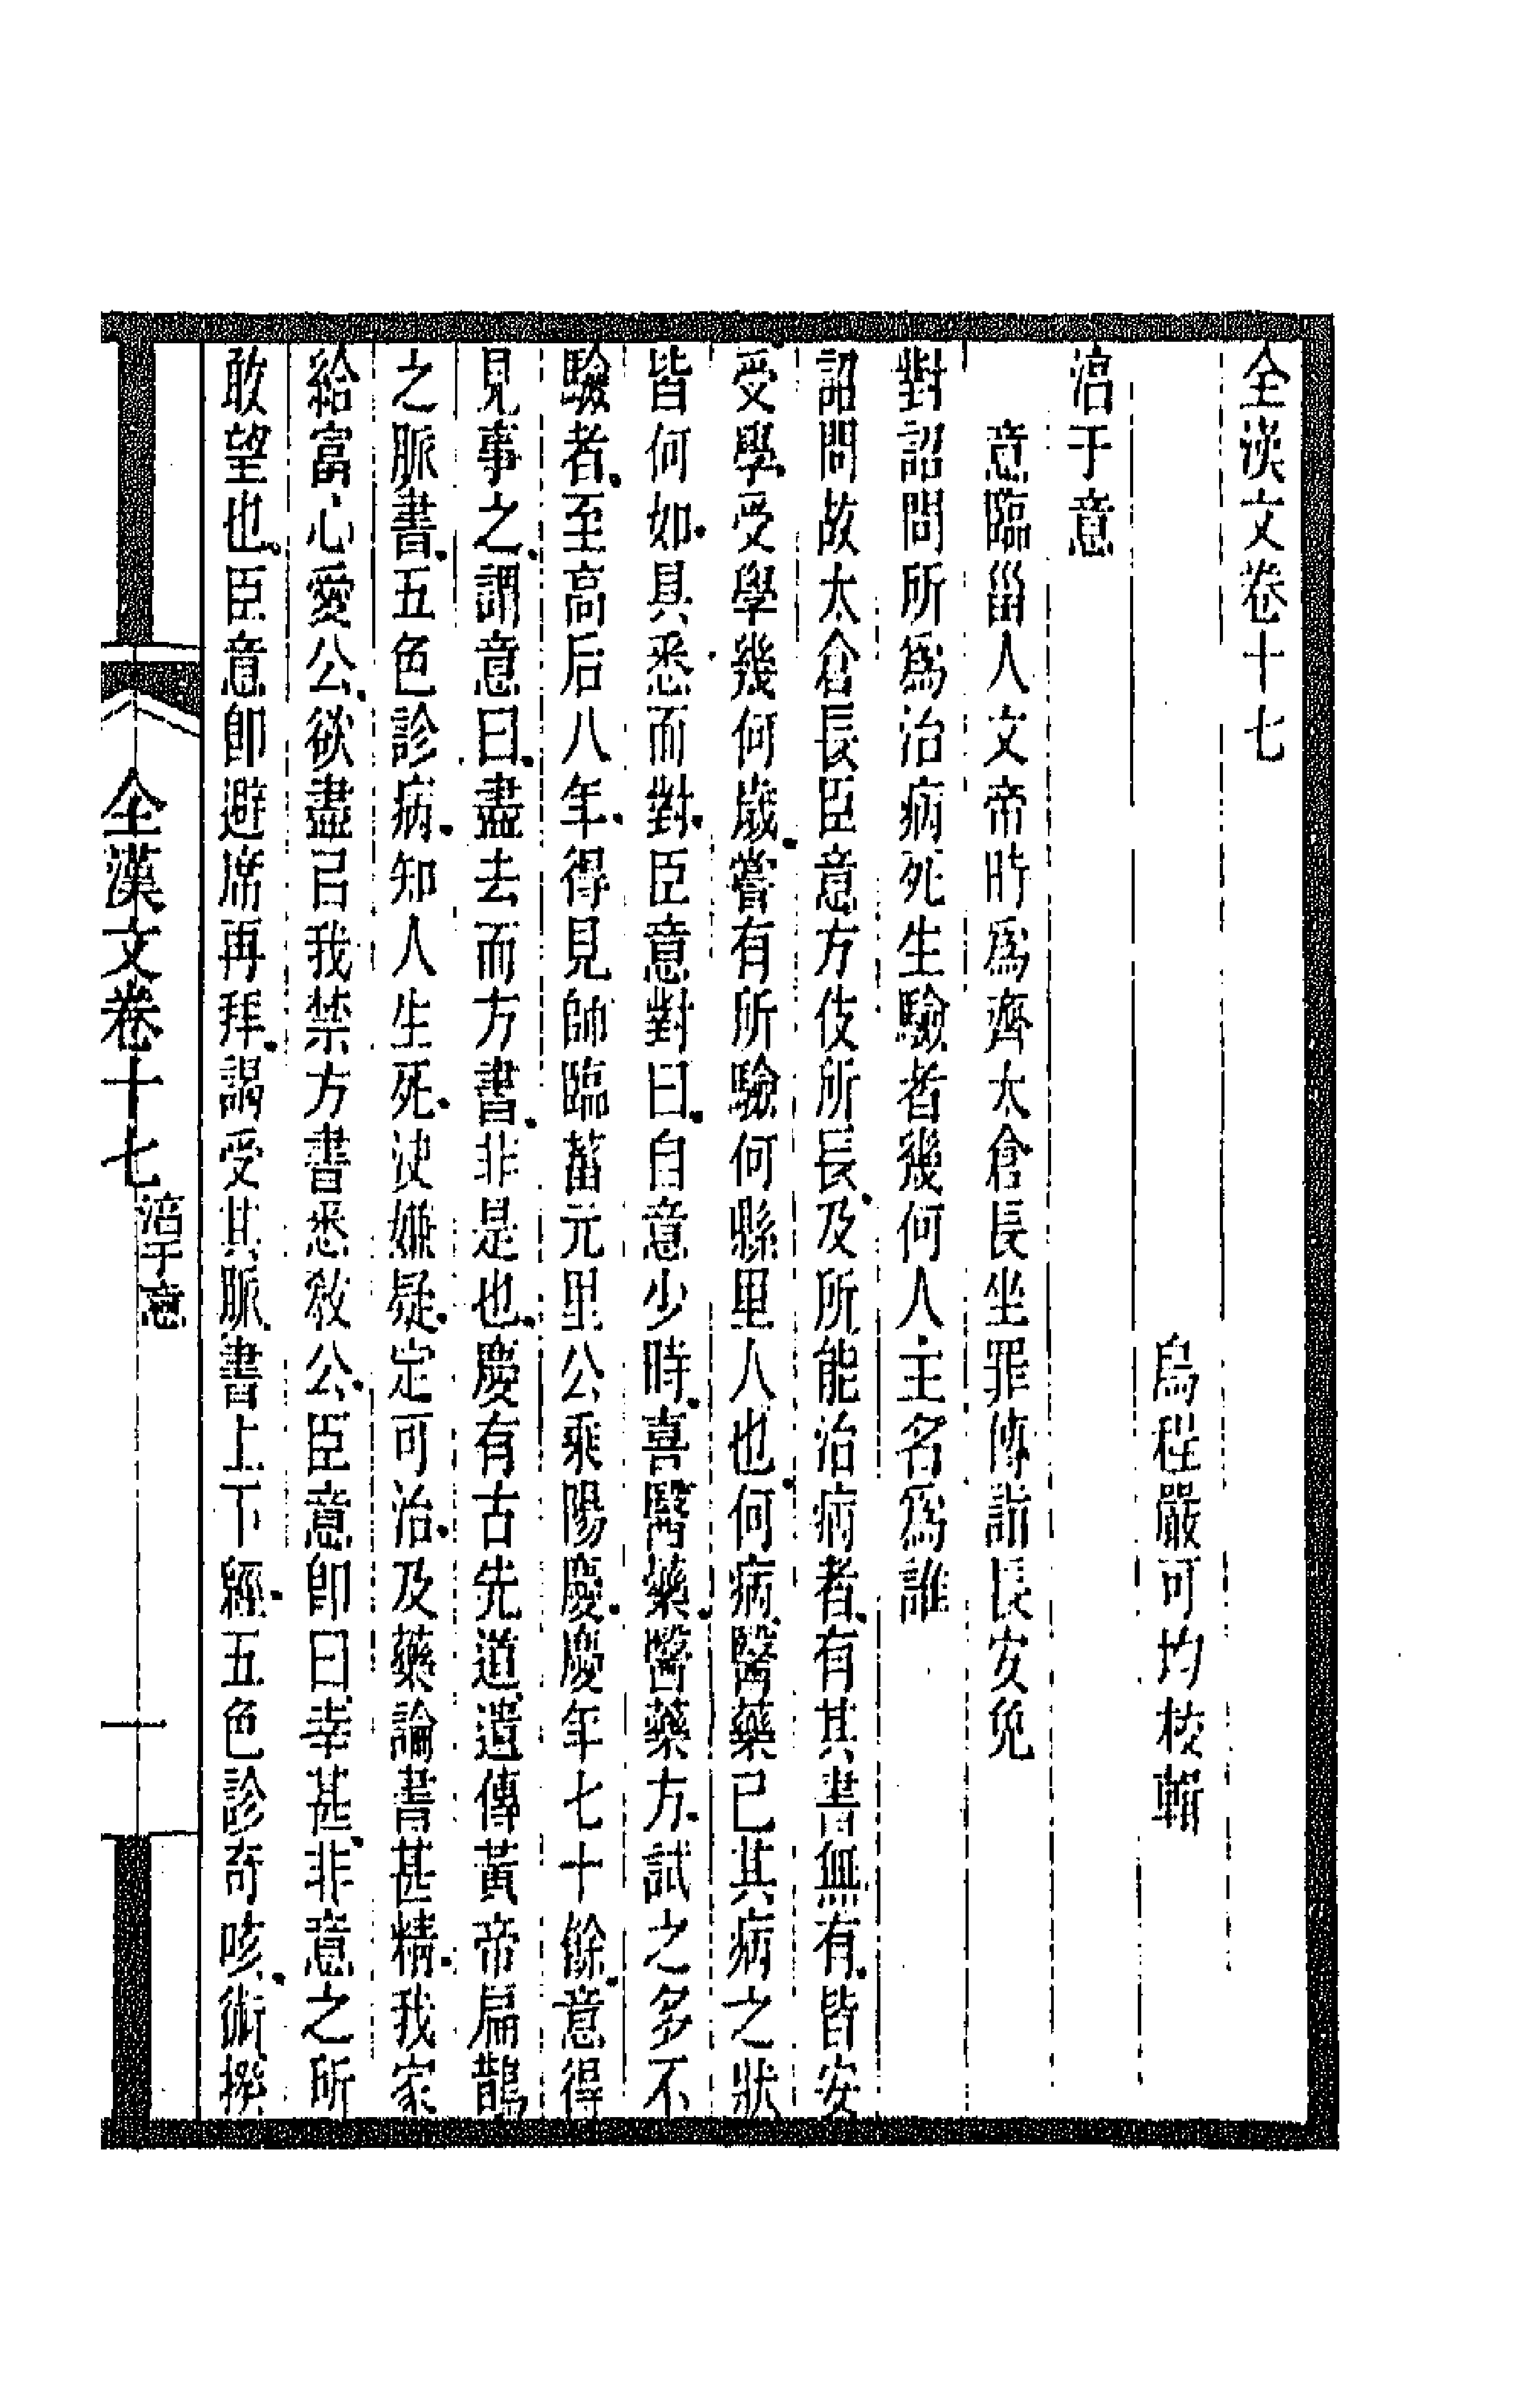 全漢文卷十七
烏程嚴可均校輯
湻于意
意臨甾人文帝時爲齊太倉長坐罪傳詣長安免
對詔問所爲治病死生驗者幾何人主名爲誰
詔問故太倉長臣意方伎所長及所能治病者有其書無有皆安
受學受學幾何歲嘗有所驗何縣里人也何病醫藥已其病之狀
皆何如具悉而對臣意對曰自意少時喜醫藥醫藥方試之多不
驗者至高后八年得見師臨菑元里公乘陽慶慶年七十餘意得
見事之謂意曰盡去而方書非是也慶有古先道遺傳黃帝扁鵲
之脈書五色診病知人生死決嫌疑定可治及藥論書甚精我家
給富心愛公欲盡㠯我禁方書悉敎公臣意卽曰幸甚非意之所
敢望也臣意卽避席再拜謁受其脈書上下經五色診奇咳術揆
全漢文卷十七
湻于意
一